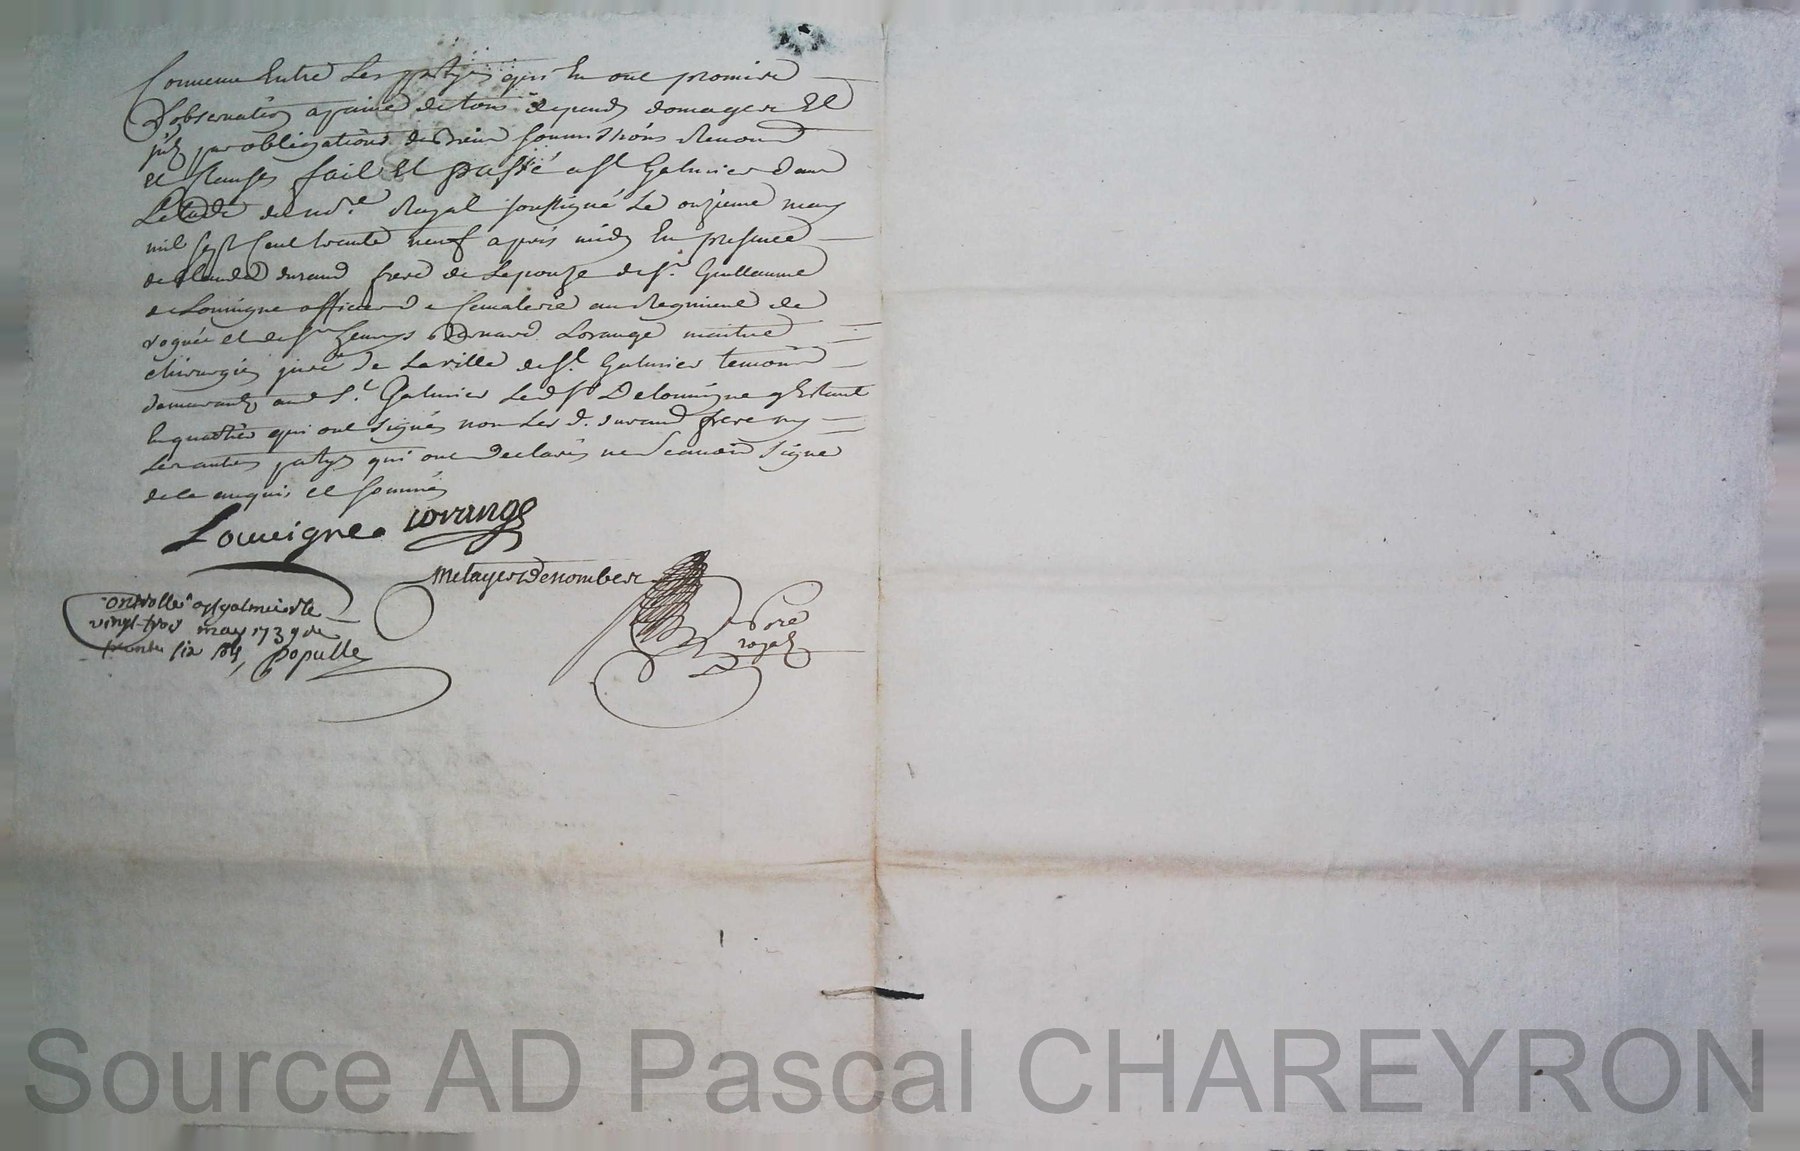 Convenu Entre Les partyes qui En ont promise
L'observation a paine de tous depends domages Et
par obligations de Biens soumissions Renon
et clauses fait Et passé a St Galmier dans
Letude du no.re Royal soussigné Le onzieme may
mil sept Cent trente neuf apres midy En presence
de Claude durand frere de Lepouze de Sr. Guillaume
de Louvigne officier de Cavalerie au Regiment de
vogué et de Sr Bernard Lorange maitre
chirurgien juré de La ville de St. Galmier temoins
demurants aud St. Galmier Led Sr De louvigne y Estant
En quartier qui ont signés non Led d. durand frere ny
Les autres partyes qui ont declarés ne scavoir signe
de ce enquis et sommés
Louvigne Lorange
Metayer Denombes
Nore
royal
Controllé a St galmier le
vingt trois may 1739 Re
six sols Populle
Source AD Pascal CHAREYRON